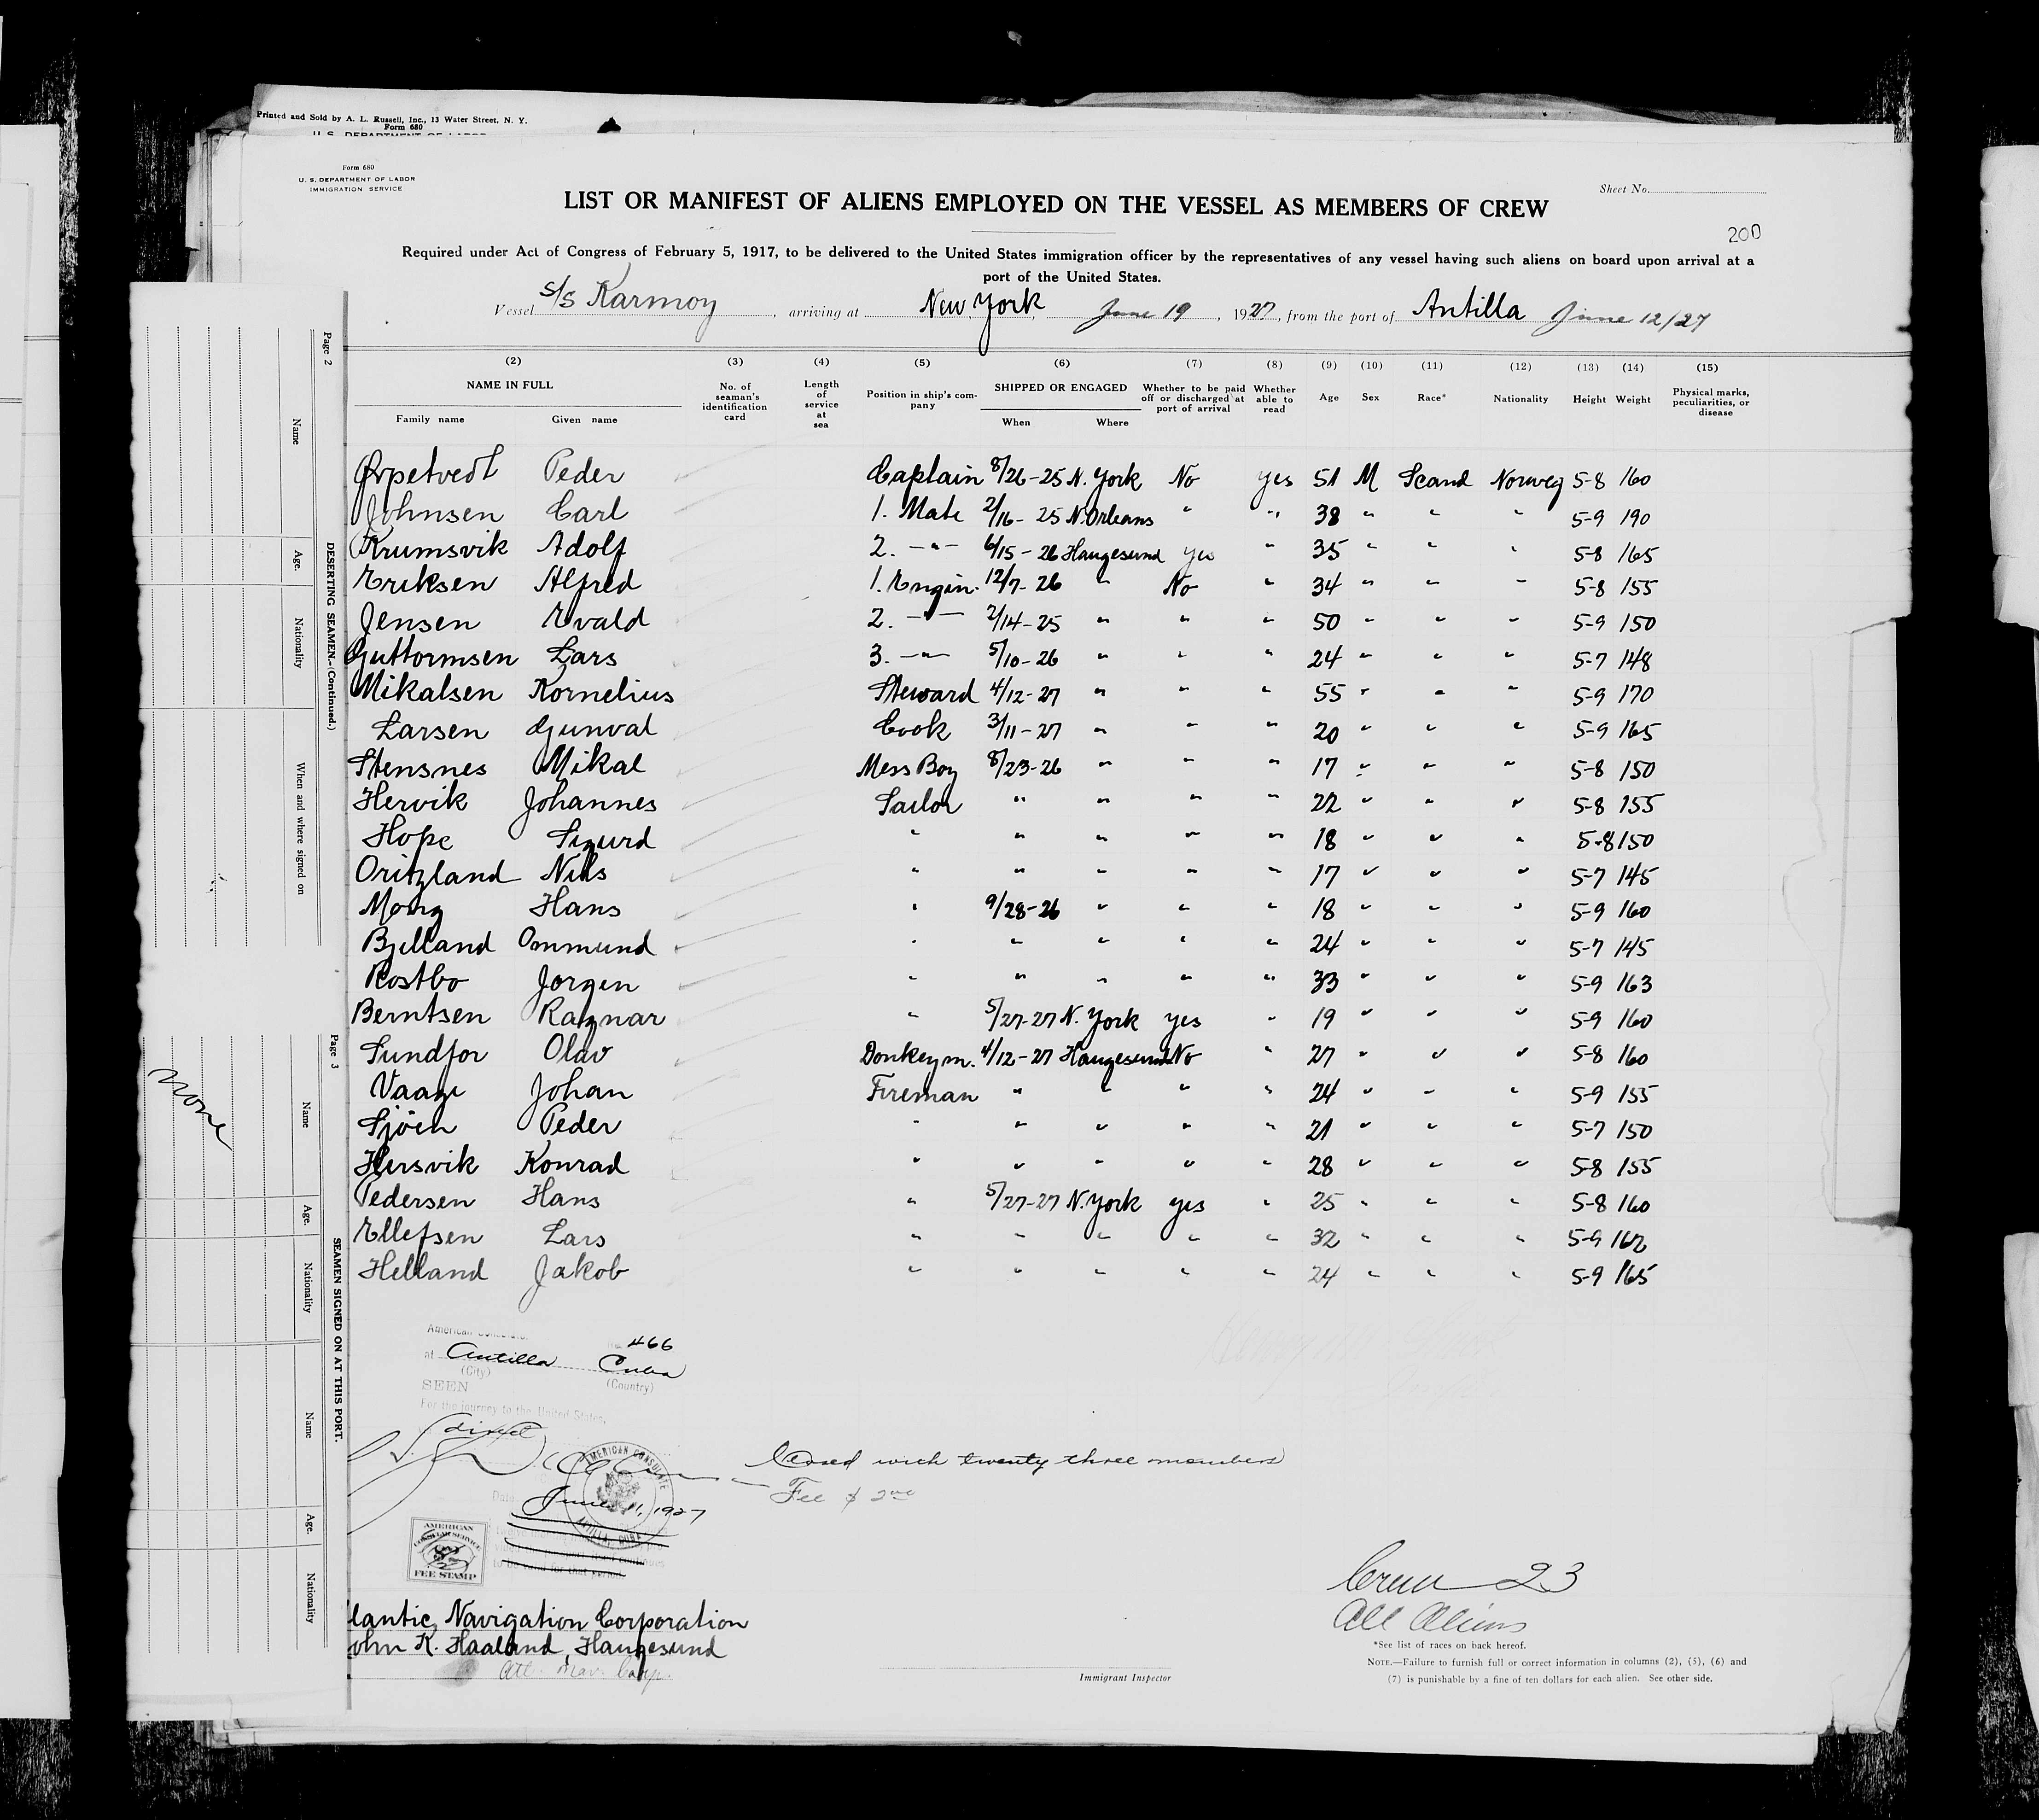 Printed and Sold by A. L. Russell, Inc., 13 Water Street, N. Y.
Form 680
U. S. DEPARTMENT OF LABOR
Form 680
U. S. DEPARTMENT OF LABOR
IMMIGRATION SERVICE
Sheet No.
LIST OR MANIFEST OF ALIENS EMPLOYED ON THE VESSEL AS MEMBERS OF CREW
200
Required under Act of Congress of February 5, 1917, to be delivered to the United States immigration officer by the representatives of any vessel having such aliens on board upon arrival at a
port of the United States.
Vessel S/S Karmoy, arriving at New York, June 19, 1927, from the port of Antilla June 12/27
(2) (3) (4) (5) (6) (7) (8) (9) (10) (11) (12) (13) (14) (15)
NAME IN FULL No. of seaman's identification card Length of service at sea Position in ship's company SHIPPED OR ENGAGED Whether to be paid off or discharged at port of arrival Whether able to read Age Sex Race* Nationality Height Weight Physical marks, peculiarities, or disease
Family name Given name When Where
Peder Captain 8/26-25 N. York No yes 51 M Scand Norweg 5-8 160
Johnsen Carl 1. Mate 2/16-25 N. Orleans " " 38 " " " 5-9 190
Krumsvik Adolf 2. -"- 6/15-26 Haugesund yes " 35 " " " 5-8 165
Eriksen Alfred 1. Engin. 12/7-26 " No " 34 " " " 5-8 155
Jensen Evald 2. -"- 2/14-25 " " " 50 " " " 5-9 150
Guttormsen Lars 3. -"- 5/10-26 " " " 24 " " " 5-7 148
Mikalsen Kornelius Steward 4/12-27 " " " 55 " " " 5-9 170
Larsen Gunval Cook 3/11-27 " " " 20 " " " 5-9 165
Stensnes Mikal Mess Boy 8/23-26 " " " 17 " " " 5-8 150
Hervik Johannes Sailor " " " " 22 " " " 5-8 155
Hope Sigurd " " " " " 18 " " " 5-8 150
Nils " " " " " 17 " " " 5-7 145
Mong Hans " 9/28-26 " " " 18 " " " 5-9 160
Bjelland Ommund " " " " " 24 " " " 5-7 145
Rostbo Jorgen " " " " " 33 " " " 5-9 163
Berntsen Ragnar " 5/27-27 N. York yes " 19 " " " 5-9 160
Sundfor Olav Donkeym. 4/12-27 Haugesund No " 27 " " " 5-8 160
Vaage Johan Fireman " " " " 24 " " " 5-9 155
Sjöen Peder " " " " " 21 " " " 5-7 150
Hersvik Konrad " " " " " 28 " " " 5-8 155
Pedersen Hans " 5/27-27 N. York yes " 25 " " " 5-8 160
Ellefsen Lars " " " " " 32 " " " 5-9 162
Helland Jakob " " " " " 24 " " " 5-9 165
American
466
at Antilla Cuba
(City) (Country)
SEEN
For the journey to the United States,
direct
AMERICAN CONSULATE
ANTILLA, CUBA
Date June 11, 1927
with twenty three members
Fee $ 2.00
AMERICAN
CONSULAR SERVICE
FEE STAMP
lantic Navigation Corporation
ohn K. Haaland, Haugesund
Crew 23
All Aliens
*See list of races on back hereof.
NOTE.—Failure to furnish full or correct information in columns (2), (5), (6) and
(7) is punishable by a fine of ten dollars for each alien. See other side.
Immigrant Inspector
Page 2
DESERTING SEAMEN.—(Continued.)
Name
Age.
Nationality
When and where signed on
Page 3
SEAMEN SIGNED ON AT THIS PORT.
Name
Age.
Nationality
Name
Age.
Nationality
none